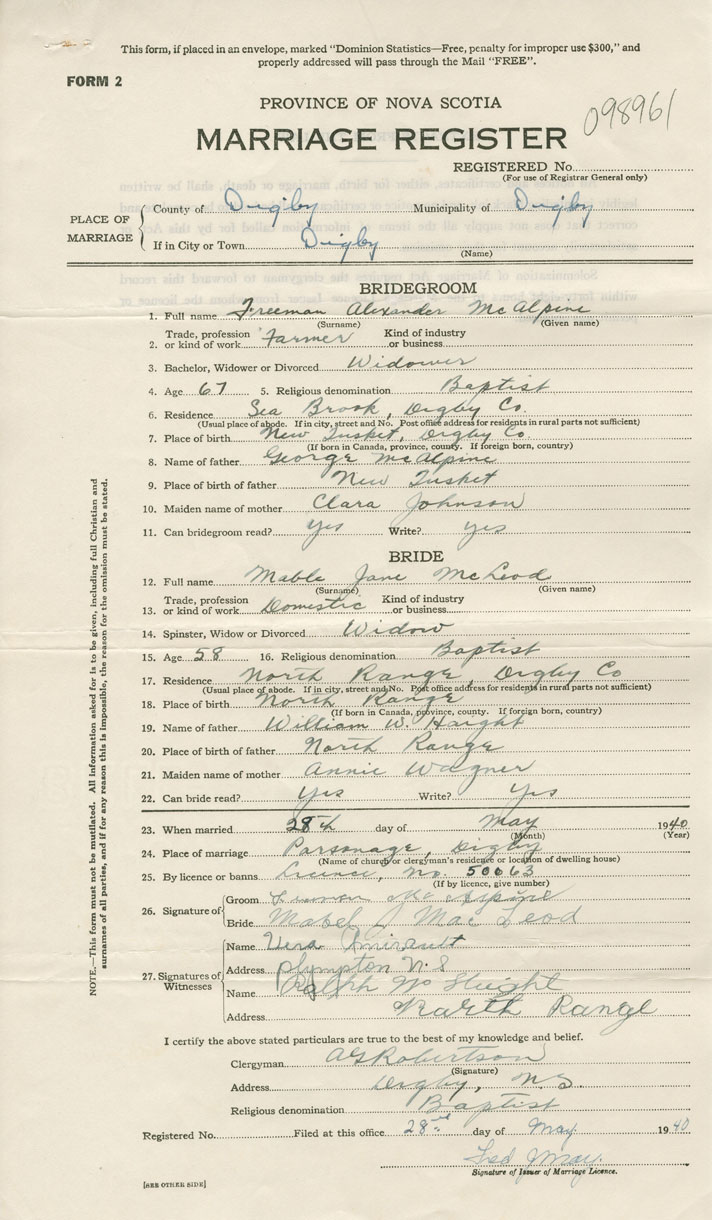 This form, if placed in an envelope, marked "Dominion Statistics—Free, penalty for improper use $300," and
properly addressed will pass through the Mail "FREE".
FORM 2
PROVINCE OF NOVA SCOTIA
098961
MARRIAGE REGISTER
REGISTERED No.
(For use of Registrar General only)
PLACE OF MARRIAGE
County of Digby Municipality of Digby
If in City or Town Digby
(Name)
BRIDEGROOM
1. Full name Freeman Alexander McAlpine
(Surname) (Given name)
Trade, profession Kind of industry
2. or kind of work Farmer or business
3. Bachelor, Widower or Divorced Widower
4. Age 67 5. Religious denomination Baptist
6. Residence Sea Brook, Digby Co.
(Usual place of abode. If in city, street and No. Post office address for residents in rural parts not sufficient)
7. Place of birth New Tusket, Digby Co.
(If born in Canada, province, county. If foreign born, country)
8. Name of father George McAlpine
9. Place of birth of father New Tusket
10. Maiden name of mother Clara Johnson
11. Can bridegroom read? Yes Write? Yes
BRIDE
12. Full name Mable Jane McLeod
(Surname) (Given name)
Trade, profession Kind of industry
13. or kind of work Domestic or business
14. Spinster, Widow or Divorced Widow
15. Age 58 16. Religious denomination Baptist
17. Residence North Range, Digby Co
(Usual place of abode. If in city, street and No. Post office address for residents in rural parts not sufficient)
18. Place of birth North Range
(If born in Canada, province, county. If foreign born, country)
19. Name of father William W. Haight
20. Place of birth of father North Range
21. Maiden name of mother Annie Wagner
22. Can bride read? Yes Write? Yes
23. When married 28th day of May 1940
(Month) (Year)
24. Place of marriage Parsonage, Digby
(Name of church or clergyman's residence or location of dwelling house)
25. By licence or banns Licence, no. 50063
(If by licence, give number)
26. Signature of
Groom Freeman McAlpine
Bride Mabel J MacLeod
27. Signatures of Witnesses
Name Vera Amirault
Address Plympton N.S
Name Ralph Mc Haight
Address North Range
I certify the above stated particulars are true to the best of my knowledge and belief.
Clergyman AGRobertson
(Signature)
Address Digby, N.S.
Religious denomination Baptist
Registered No. Filed at this office 28 day of May 1940
Signature of Issuer of Marriage Licence.
[SEE OTHER SIDE]
NOTE.—This form must not be mutilated. All information asked for is to be given, including full Christian and
surnames of all parties, and if for any reason this is impossible, the reason for the omission must be stated.